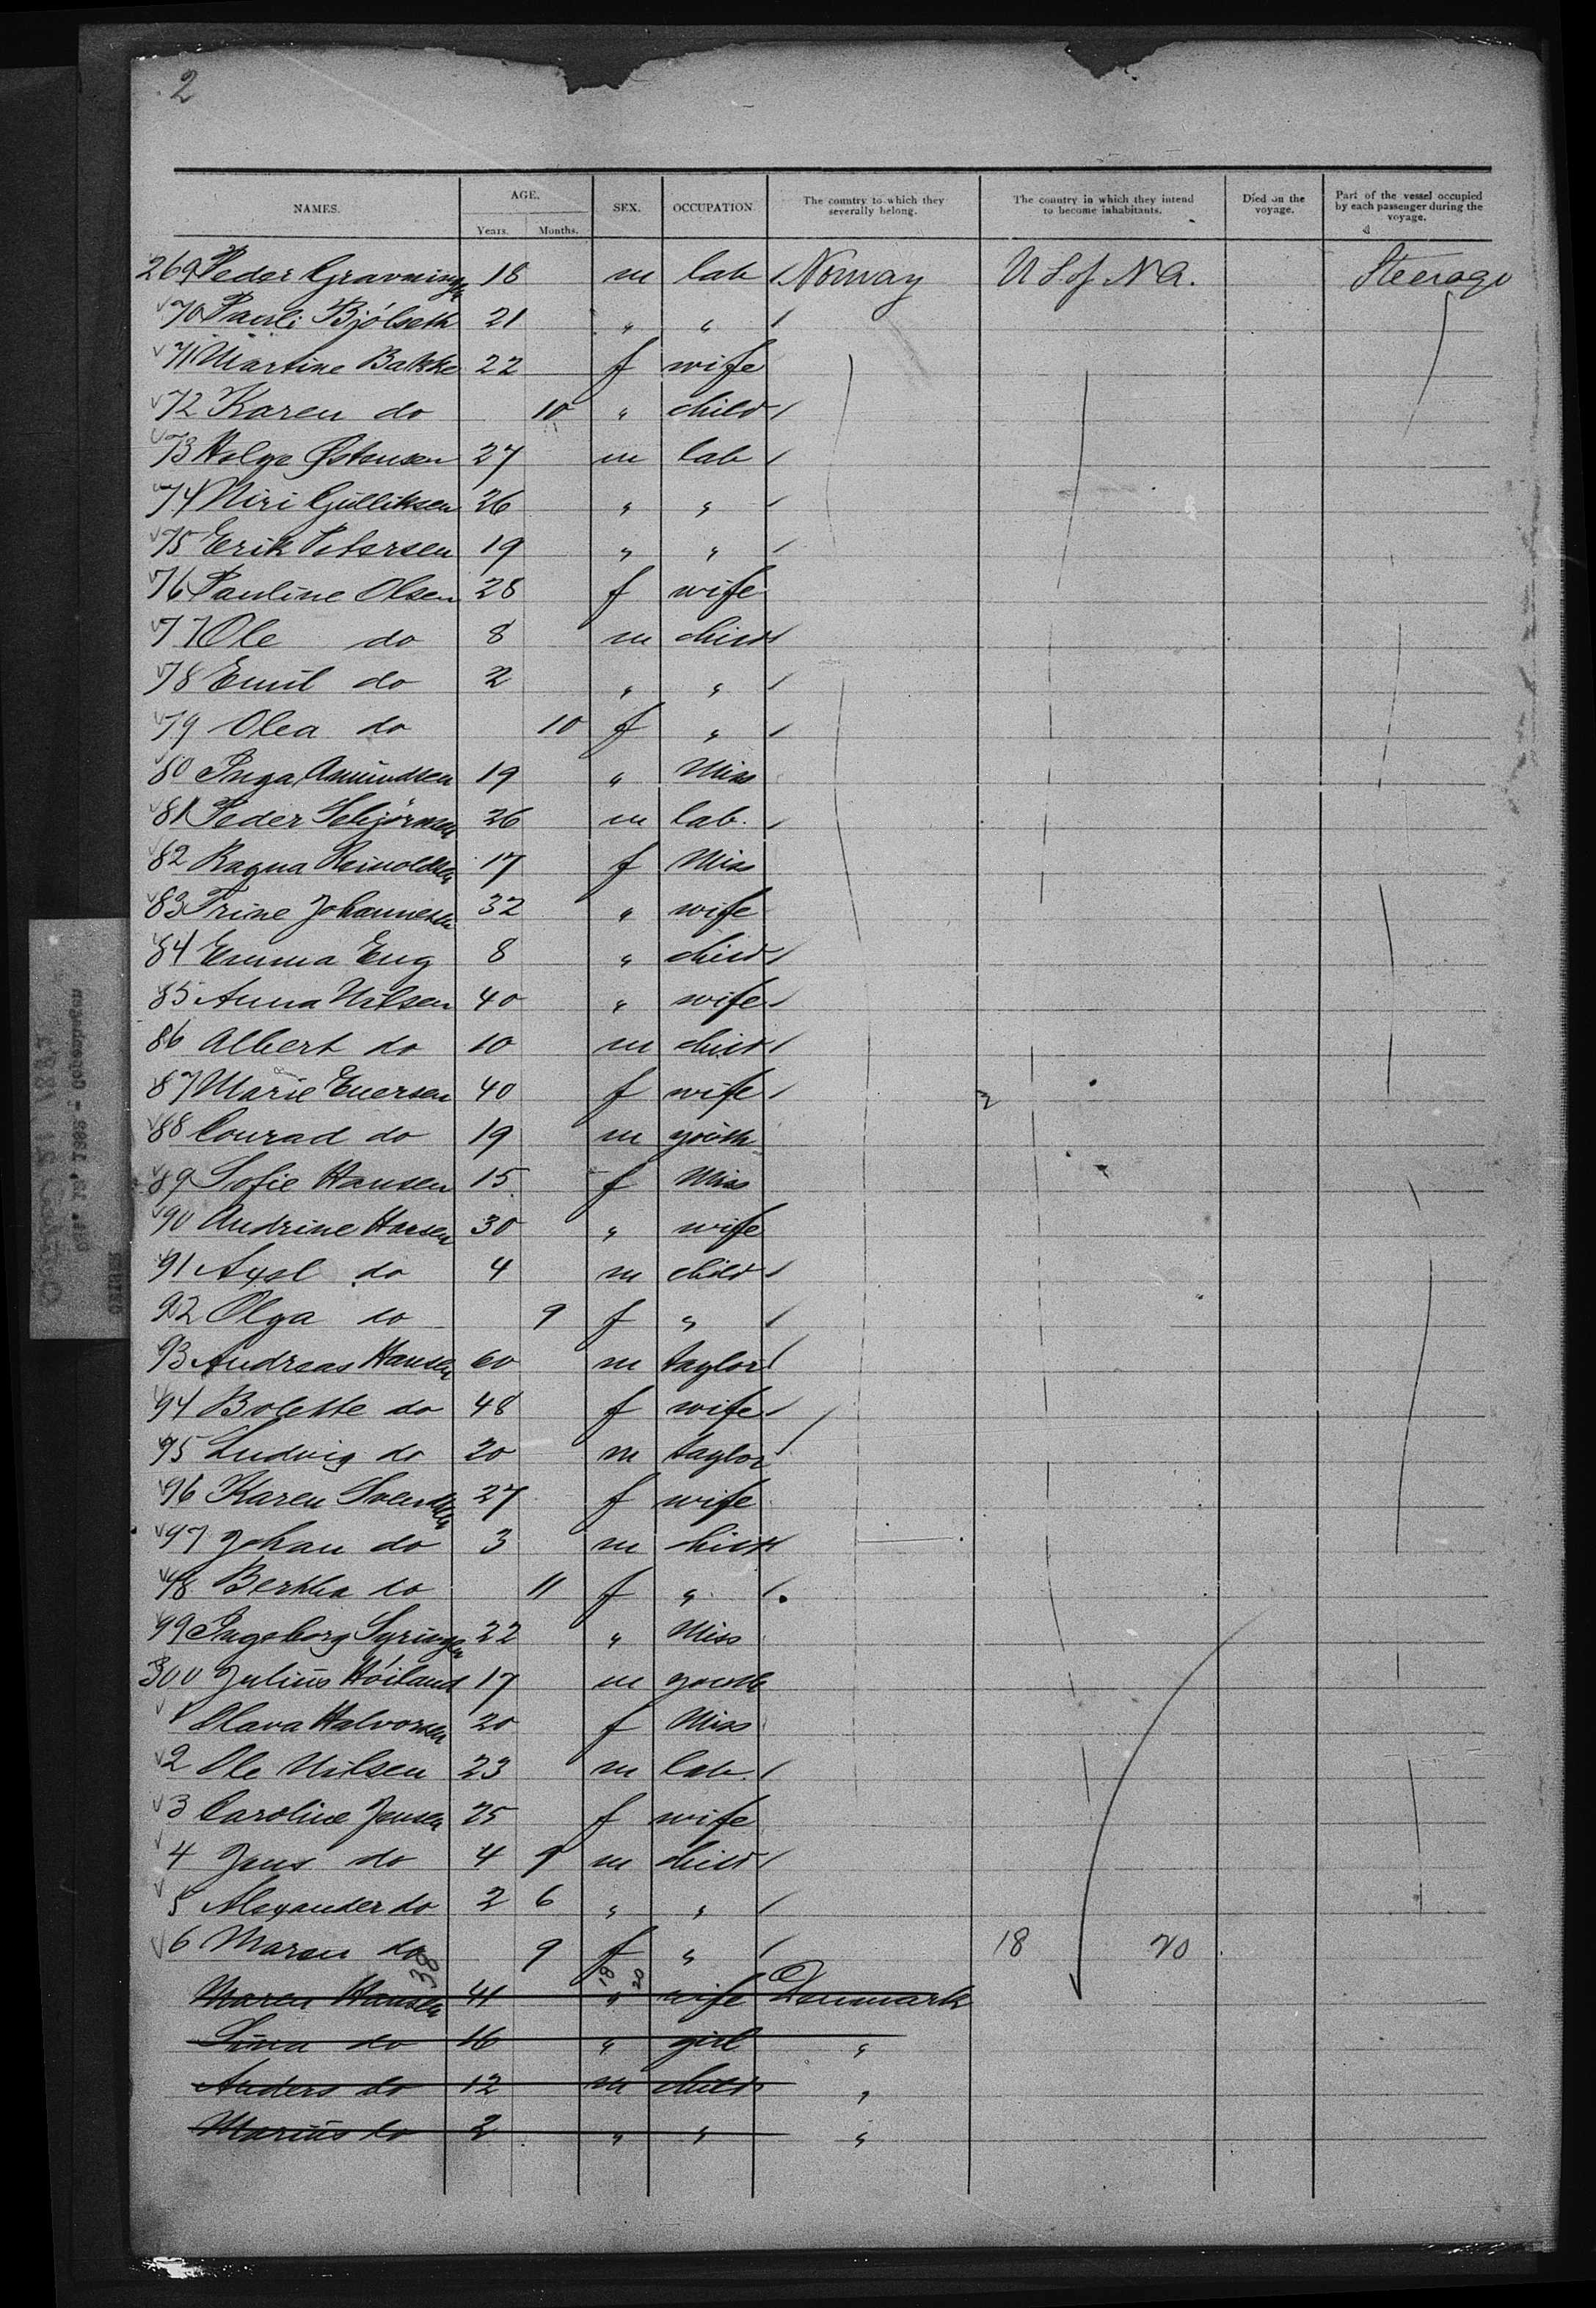 2
NAMES. AGE. Years. Months. SEX. OCCUPATION. The country to which they severally belong. The country in which they intend to become inhabitants. Died on the voyage. Part of the vessel occupied by each passenger during the voyage.
269 Peder 18 m lab Norway U S of N A. Steerage
70 Pauli Bjölseth 21 " "
71 Martine Bakke 22 f wife
72 Karen do 10 " child
73 Helge Østensen 27 m lab
74 Niri Gulliksen 26 " "
75 Erik Petersen 19 " "
76 Pauline Olsen 28 f wife
77 Ole do 8 m child
78 Emil do 2 " "
79 Olea do 10 f "
80 Inga Amundsen 19 " Miss
81 Peder 26 m lab.
82 Ragna Reinoldsen 17 f Miss
83 Trine Johannesen 32 " wife
84 Emma Eng 8 " child
85 Anna Nilsen 40 " wife
86 Albert do 10 m child
87 Marie Eversen 40 f wife
88 Conrad do 19 m youth
89 Sofie Hansen 15 f Miss
90 Andrine Hansen 30 " wife
91 Axel do 4 m child
92 Olga do 9 f "
93 Andreas Hansen 60 m taylor
94 Bolette do 48 f wife
95 Ludvig do 20 m taylor
96 Karen Svendsen 27 f wife
97 Johan do 3 m child
98 Bertha do 11 f "
99 Ingeborg 22 " Miss
300 Julius Höiland 17 m youth
1 Olava Halvorsen 20 f Miss
2 Ole Nilsen 23 m lab.
3 Caroline Jensen 25 f wife
4 Jens do 4 m child
5 Alexander do 2 6 " "
6 Maren do 9 f " 18 20
38 18 20
Maren Hansen 41 " wife Denmark
do 16 " girl "
Anders do 12 m child "
Marius do 2 " " "